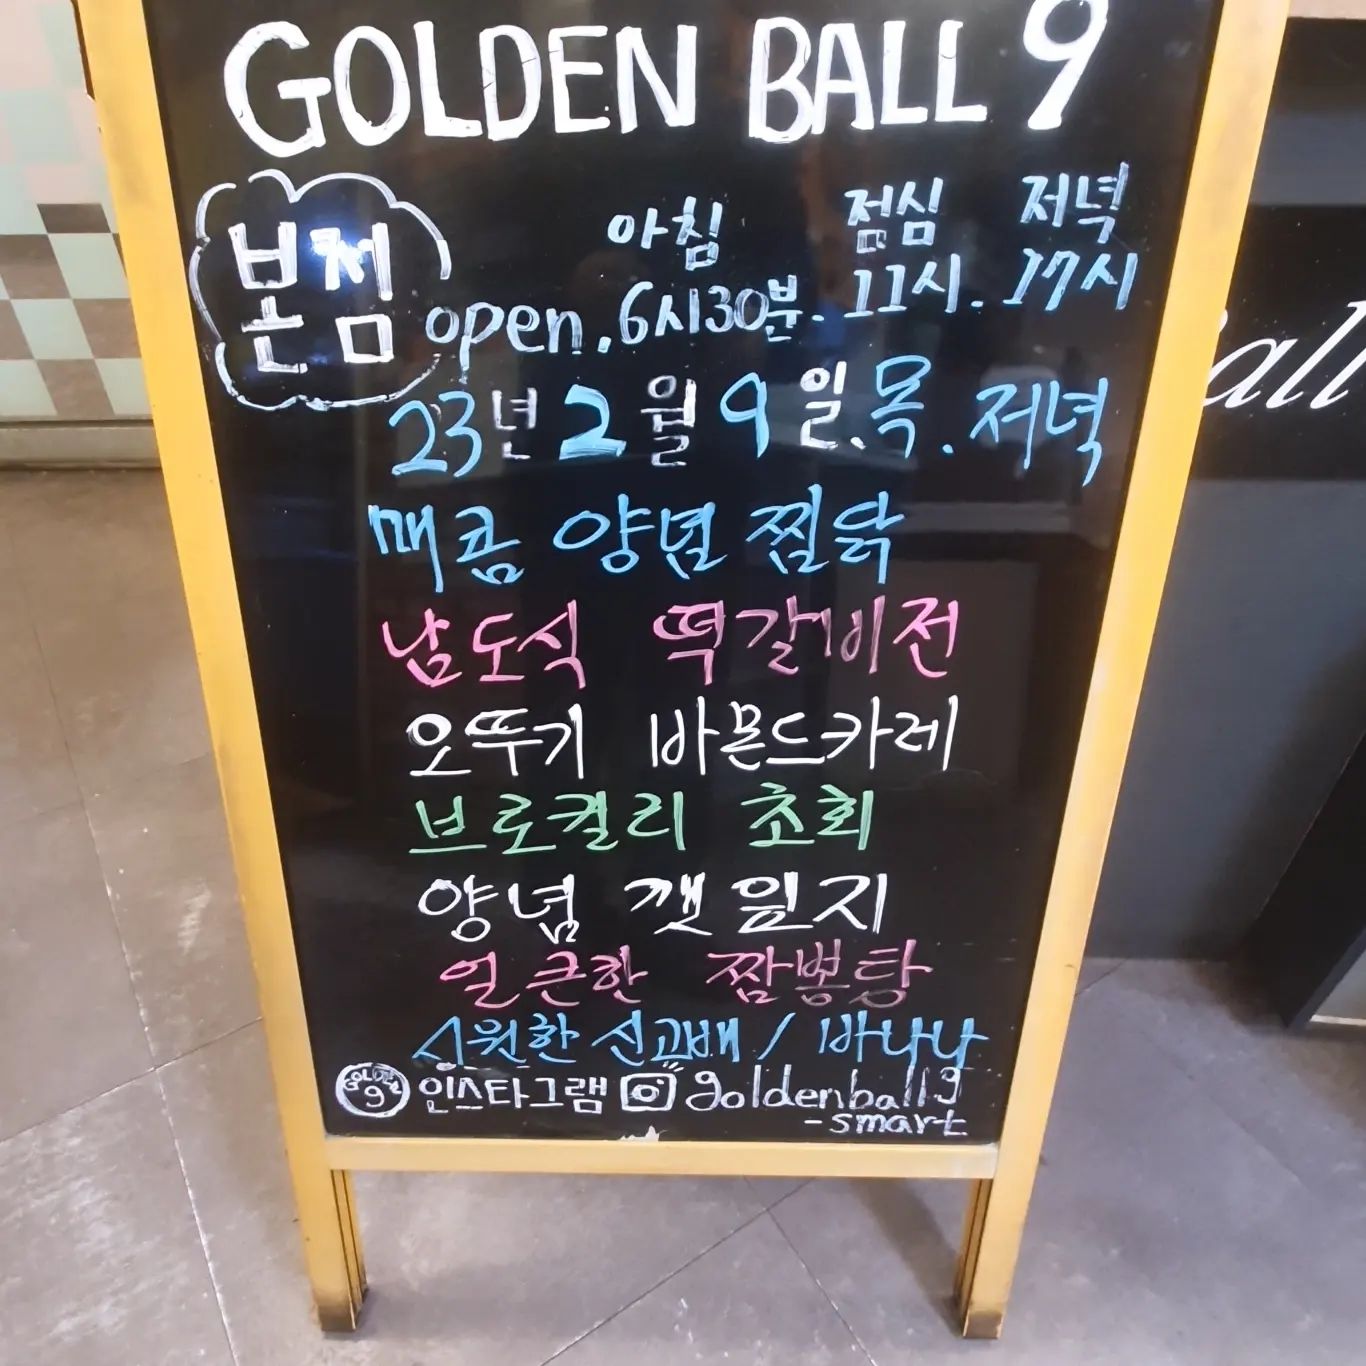 GOLDEN BALL 9
본점
아침 점심 저녁
open. 6시30분. 11시. 17시
23년 2월 9일. 목. 저녁
매콤 양념 찜닭
남도식 떡갈비전
오뚜기 바몬드카레
브로컬리 초회
양념 깻잎지
얼큰한 짬뽕탕
시원한 신고배 / 바나나
GOLDEN 9 인스타그램 goldenball9
-smart
all